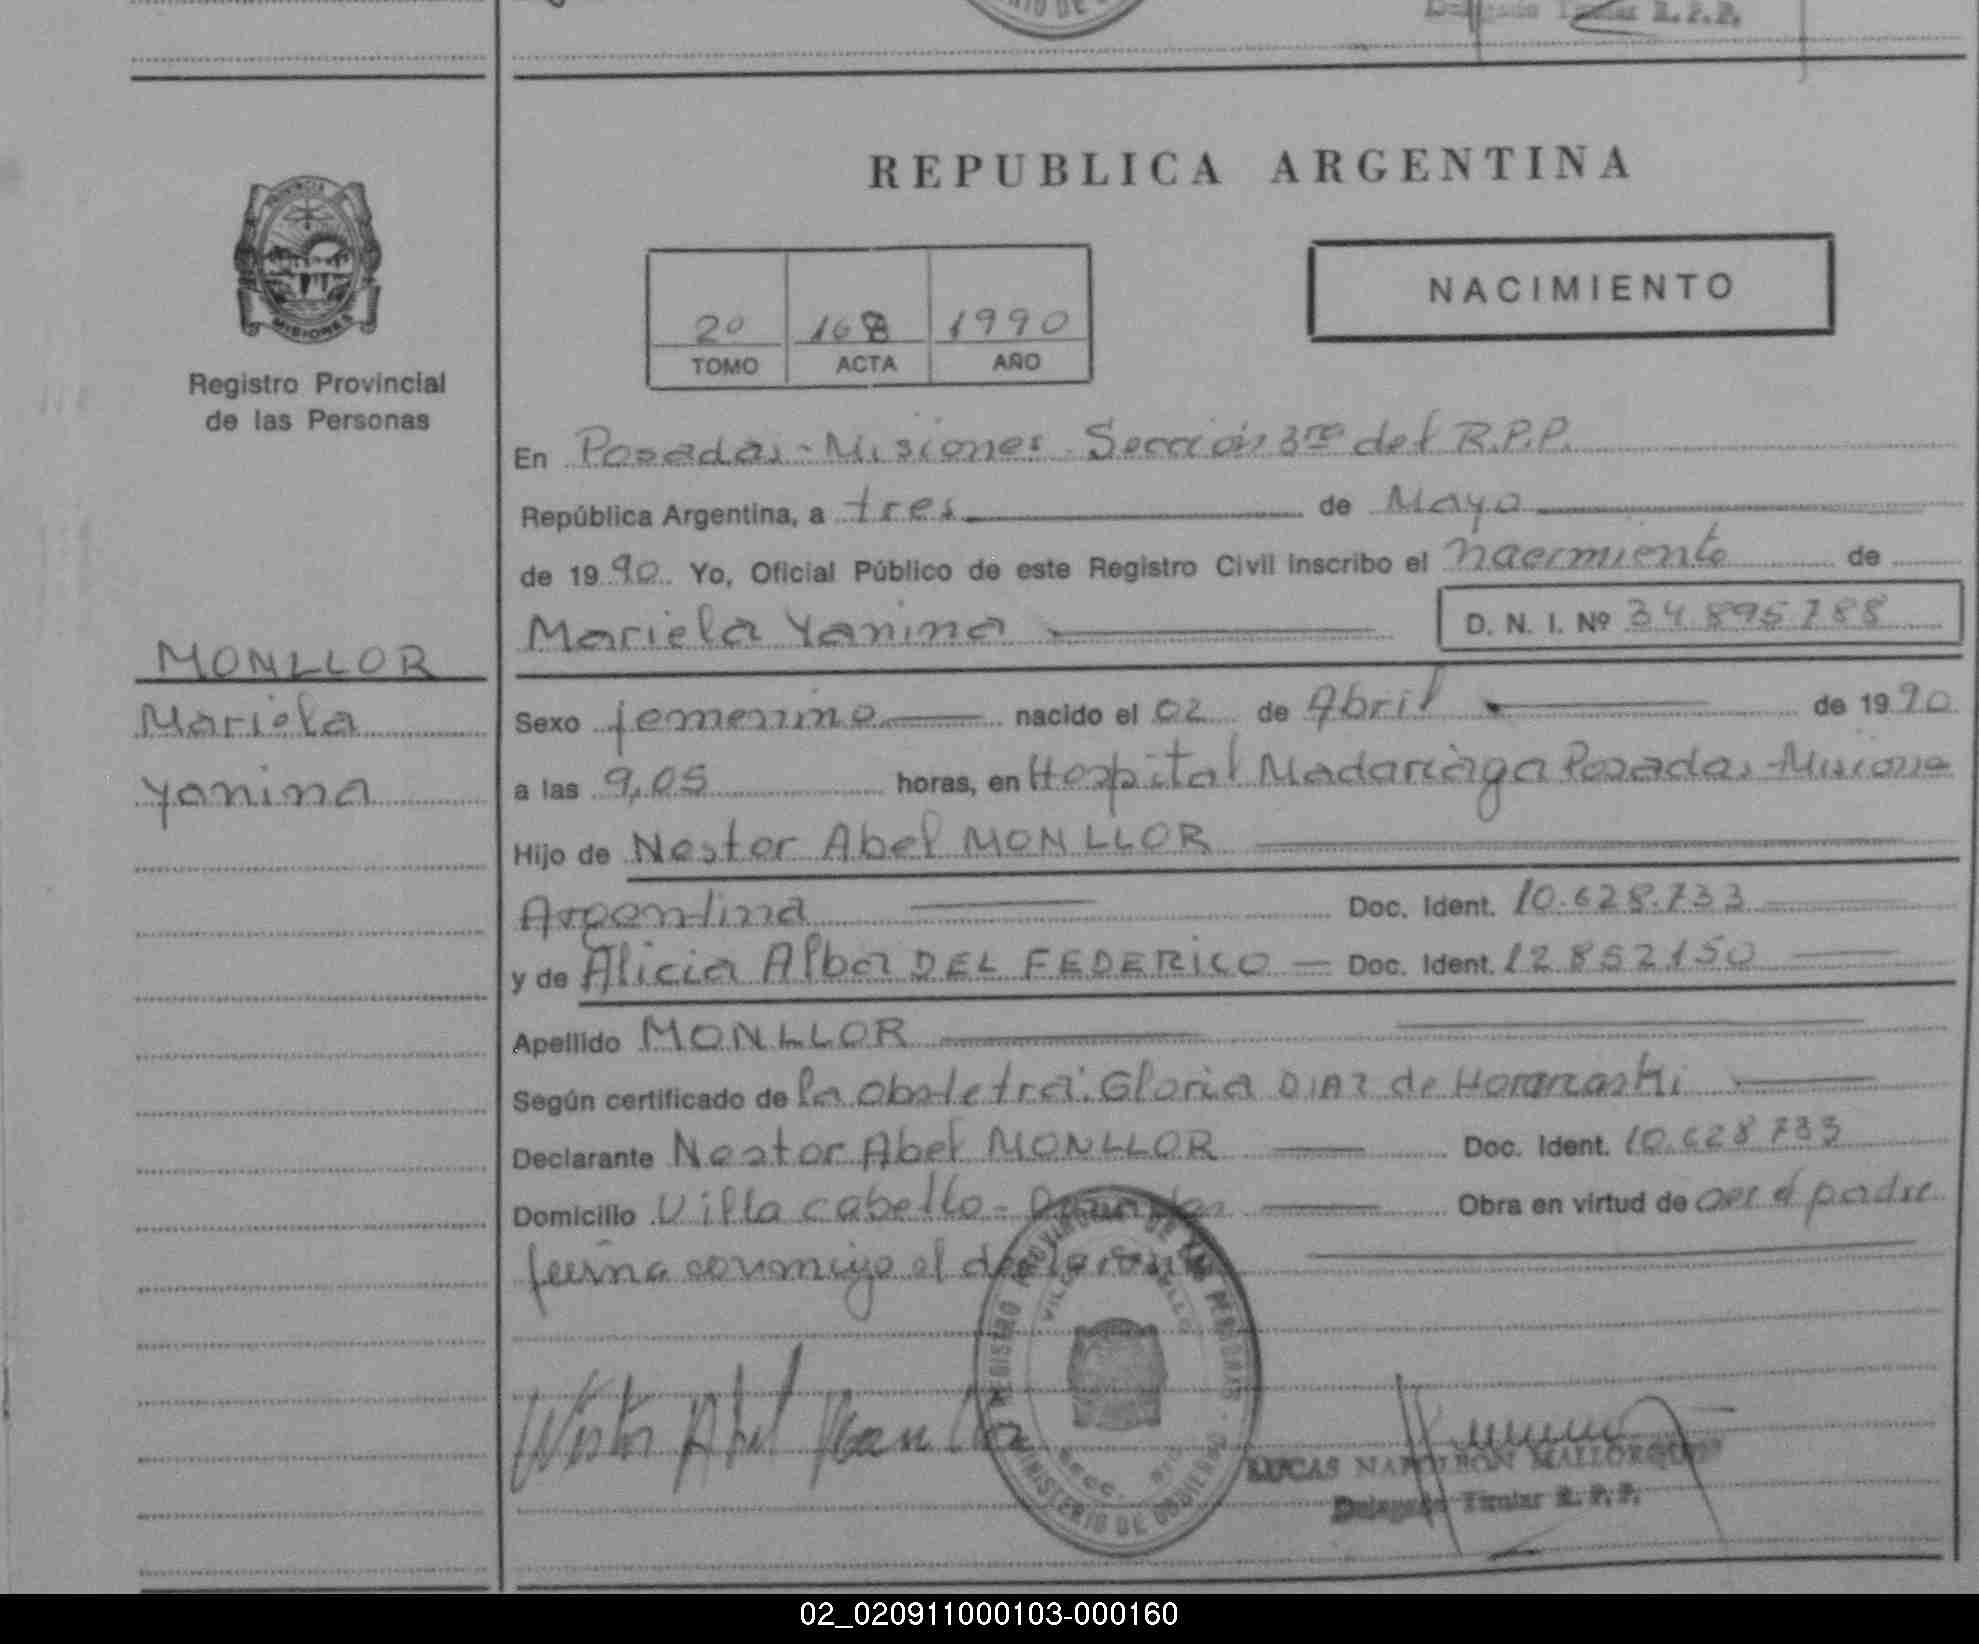 RIO DE
Delegado Titular R.P.P.
PROVINCIA
MISIONES
Registro Provincial
de las Personas
REPUBLICA ARGENTINA
NACIMIENTO
2º 168 1990
TOMO ACTA AÑO
En Posadas - Misiones - Sección 3ra del R.P.P.
República Argentina, a tres de Mayo
de 1990. Yo, Oficial Público de este Registro Civil inscribo el nacimiento de
Mariela Yanina D. N. I. Nº 34 895 788
MONLLOR
Mariela
Yanina
Sexo femenino nacido el 02 de Abril de 1990
a las 9,05 horas, en Hospital Madariaga Posadas - Misiones
Hijo de Nestor Abel MONLLOR
Argentina Doc. Ident. 10.628.733
y de Alicia Alba DEL FEDERICO — Doc. Ident. 12 852150
Apellido MONLLOR
Según certificado de la obstetra: Gloria DIAZ de
Declarante Nestor Abel MONLLOR Doc. Ident. 10.628 733
Domicilio Villa Cabello - Posadas Obra en virtud de ser el padre
firma conmigo el declarante
REGISTRO PROVINCIAL DE LAS PERSONAS
VILLA CABELLO
SECC. 3ra
MINISTERIO DE GOBIERNO
Nestor Abel Monllor
LUCAS NAPOLEON MALLORQUIN
Delegado Titular R. P. P.
02_020911000103-000160